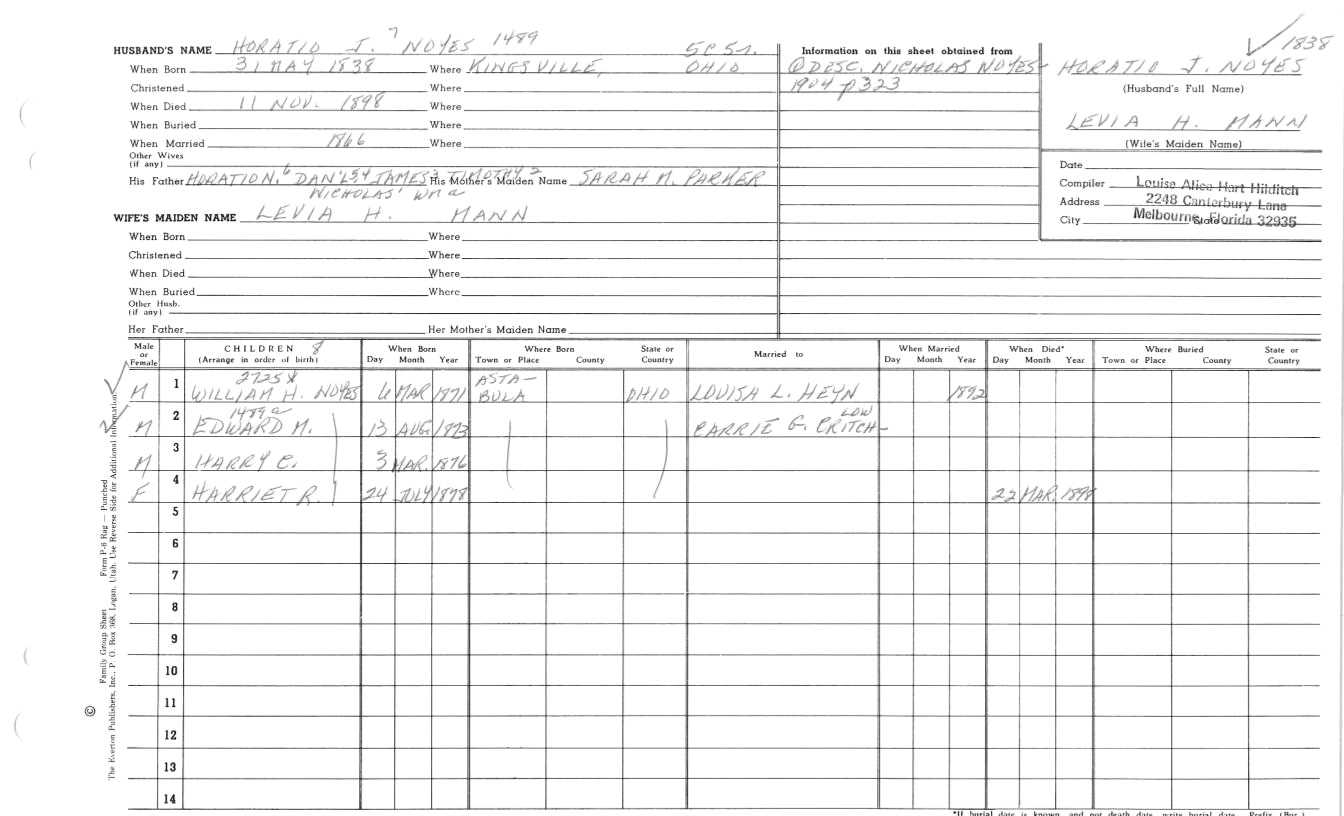 HUSBAND'S NAME HORATIO J. 7 NOYES 1489
When Born 31 MAY 1838 Where KINGSVILLE, OHIO
Christened Where
When Died 11 NOV. 1898 Where
When Buried Where
When Married 1866 Where
Other Wives
(if any)
His Father HORATION, 6 DAN'L 5,4 JAMES 3 TIMOTHY 2 His Mother's Maiden Name SARAH M. PARKER
NICHOLAS' Wm a
WIFE'S MAIDEN NAME LEVIA H. MANN
When Born Where
Christened Where
When Died Where
When Buried Where
Other Husb.
(if any)
Her Father Her Mother's Maiden Name
Information on this sheet obtained from
DESC. NICHOLAS NOYES-
1904 p323
1838
HORATIO J. NOYES
(Husband's Full Name)
LEVIA H. MANN
(Wife's Maiden Name)
Date
Compiler Louise Alice Hart Hilditch
Address 2248 Canterbury Lane
City Melbourne, Florida 32935
State
Male or Female CHILDREN 8 (Arrange in order of birth) When Born Day Month Year Where Born Town or Place County State or Country Married to When Married Day Month Year When Died* Day Month Year Where Buried Town or Place County State or Country
2725 x ASTA-
M 1 WILLIAM H. NOYES 6 MAR 1871 BULA OHIO LOUISA L. HEYN 1892
1489a LOW
M 2 EDWARD M. 13 AUG. 1873 CARRIE G. CRITCH-
M 3 HARRY C. 3 MAR. 1876
F 4 HARRIET R. 24 JULY 1878 22 MAR. 1898
5
6
7
8
9
10
11
12
13
14
Family Group Sheet Form P-6 Rag — Punched
© The Everton Publishers, Inc., P. O. Box 368, Logan, Utah. Use Reverse Side for Additional Information
*If burial date is known, and not death date, write burial date. Prefix (Bur.)